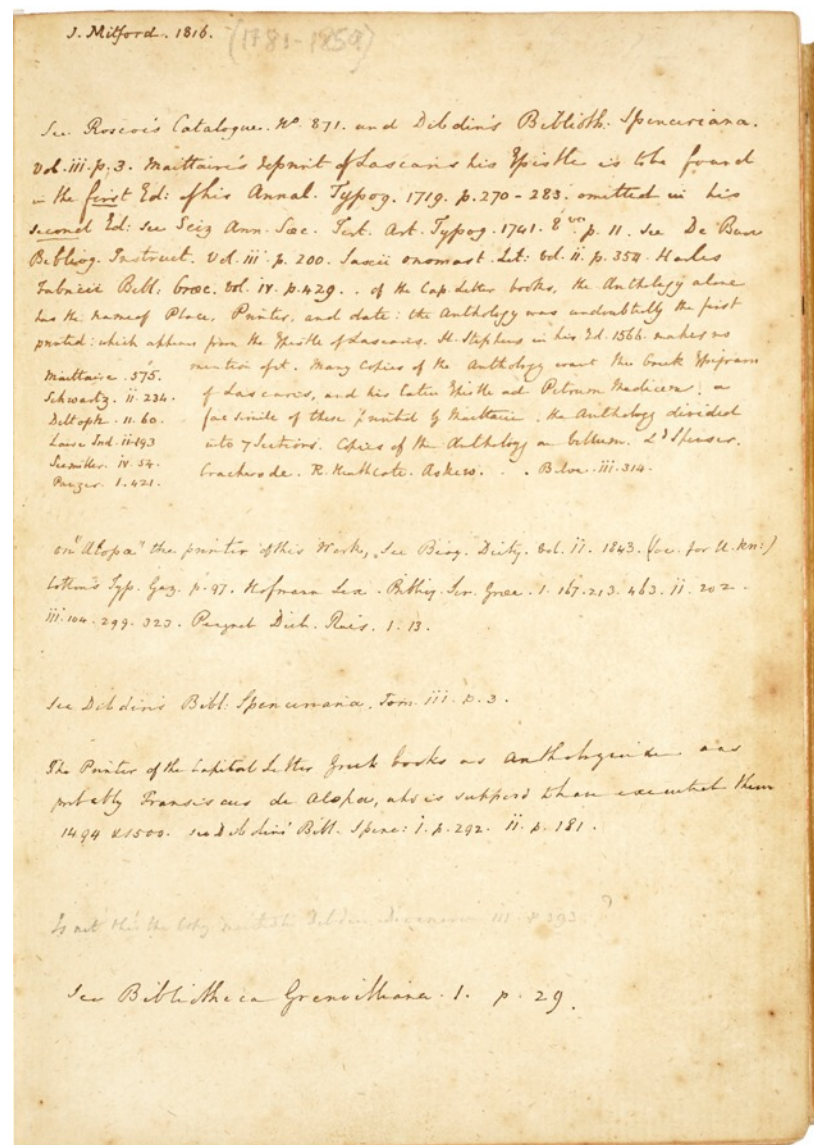 J. Mitford. 1816. (1781-1859)
See Roscoe's Catalogue. No. 871. and Dibdin's Biblioth: Spenceriana.
Vol. iii. p. 3. Maittaire's reprint of Lascaris his Epistle is to be found
in the first Ed: of his Annal. Typog. 1719. p. 270-283. omitted in his
second Ed: see Seiz Ann. Sæc. Tert. Art. Typog. 1741. 8vo. p. 11. See De Bure
Bibliog. Instruct. Vol. iii. p. 200. Saxii onomast. Lit: vol. ii. p. 354. Harles
Fabricii Bibl: Græc. vol. iv. p. 429. . of the Cap. Letter books, the Anthology alone
has the name of Place, Printer, and date: the Anthology was undoubtedly the first
printed: which appears from the Epistle of Lascaris. H. Stephens in his Ed. 1566. makes no
mention of it. Many Copies of the Anthology want the Greek Epigram
of Lascaris, and his Latin Epistle ad Petrum Medicem, a
fac simile of these printed by Maittaire. the Anthology divided
into 7 Sections. Copies of the Anthology on vellum. Ld Spenser.
Cracherode. R. Heathcote. Askew. . . iii. 314.
Maittaire. 575.
Schwartz. ii. 234.
ii. 60.
Laire Ind. ii. 193
Seemiller. iv. 54.
Panzer. 1. 421.
on "Alopa" the printer of this Work, See Biog. Dicty. vol. II. 1843. (soc. for U. Kn:)
Cotton's Typ. Gaz. p. 97. Hofmann Lex. Bibliog. Scr. Græc. 1. 167. 213. 463. ii. 202.
iii. 104. 299. 323. Peignot Dict. 1. 13.
See Dibdin's Bibl: Spenceriana. Tom. iii. p. 3.
The Printer of the Capital Letter Greek books as Anthology was
probably Franciscus de Alopa, who is supposd to have executed them
1494 1500. see Dibdin's Bibl. Spenc: i. p. 292. ii. p. 181.
Is not this the Copy Dibdin Decameron iii p 293 ?
See Bibliotheca Grenvilliana. 1. p. 29.